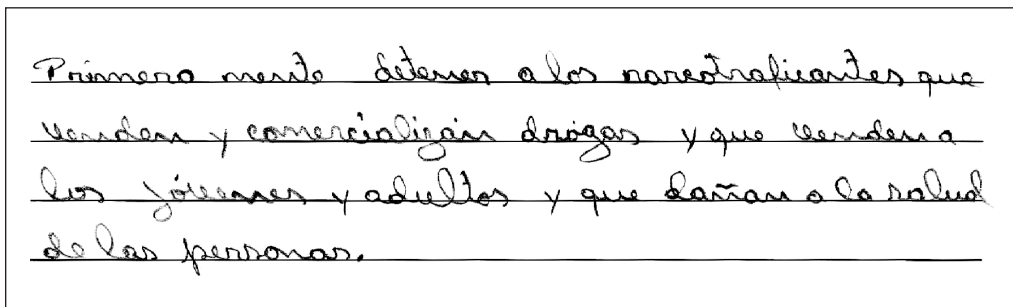 Primero mente detener a los narcotraficantes que
venden y comercializán drógas y que venden a
los jóvenes y adultos y que dañan a la salud
de las personas.